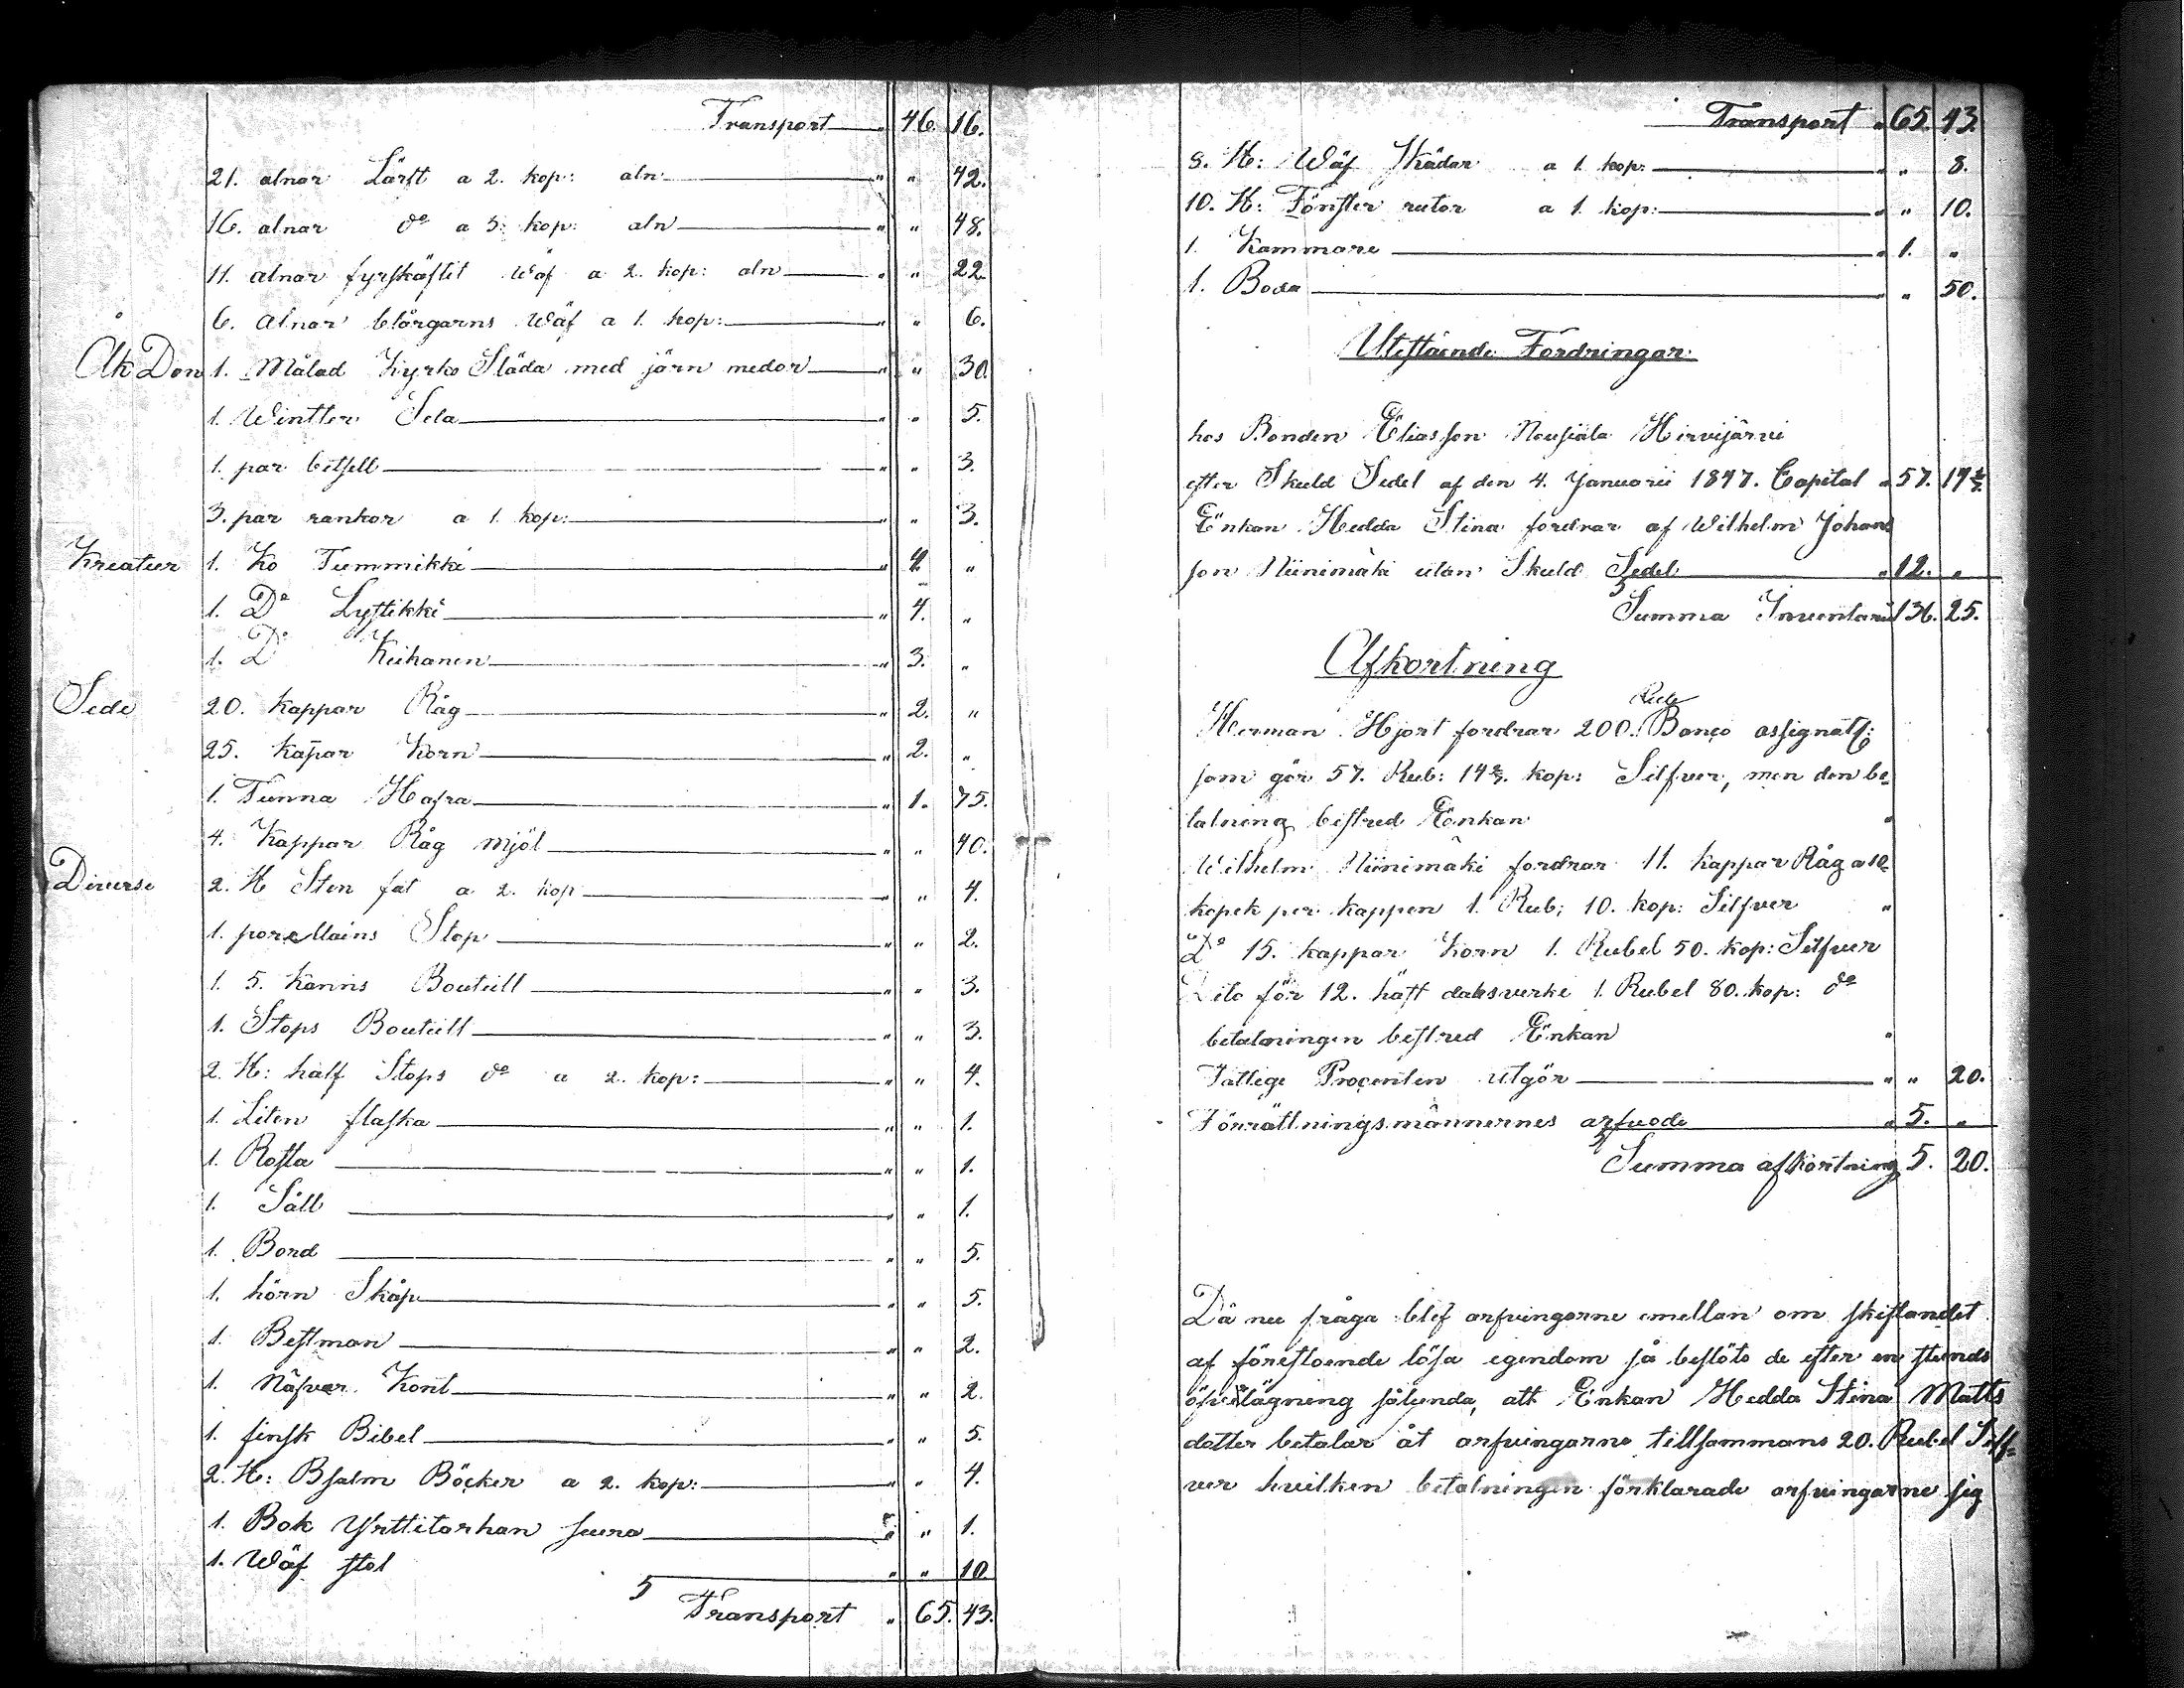 Transport " 46. 16.
21. alnar Lärft a 2. kop: aln " " 42.
16. alnar do a 3. kop: aln " " 48.
11. alnar fyrskäftit Wäf a 2. kop: aln " " 22.
6. alnar blårgarns Wäf a 1. kop: " " 6.
Åk Don 1. Målad Kyrko Släda med järn medor " " 30.
1. Wintter Sela " " 5.
1. par betsell " " 3.
3. par rankor a 1. kop: " " 3.
Kreatur 1. Ko Tummikki " 4. "
1. Do Lyttikki " 4. "
1. Do Kiihanen " 3. "
Sede 20. Kappar Råg " 2. "
25. Kapar Korn " 2. "
1. Tunna Hafra " 1. 75.
4. Kappar Råg mjöl " " 40.
Diverse 2. St Sten fat a 2. kop " " 4.
1. porcellains Stop " " 2.
1. 5. Kanns Bouteill " " 3.
1. Stops Bouteill " " 3.
2. St: half Stops do a 2. kop: " " 4.
1. Liten flaska " " 1.
1. Rosta " " 1.
1. Såll " " 1.
1. Bord " " 5.
1. hörn Skåp " " 5.
1. Bestman " " 2.
1. Näfver Kont " " 2.
1. finsk Bibel " " 5.
2. St: Psalm Böcker a 2. kop: " " 4.
1. Bok Yrttitarhan seura " " 1.
1. Wäf stol " " 10
Transport " 65. 43.
Transport " 65. 43.
8. St: Wäf Skädar a 1 kop: " " 8.
10. St: Fönster rutor a 1. kop: " " 10.
1. Kammare " 1. "
1. Boda " " 50.
Utestående Fordringar
hos Bonden Eliasson Nousiala Hirvijärvi
efter Skuld Sedel af den 4. Januarii 1847. Capital " 57. 14 2/7.
Enkan Hedda Stina fordrar af Wilhelm Johans
son Niinimäki utan Skuld Sedel " 12. "
Summa Inventarii 136. 25.
Afkortning
Herman Hjort fordrar 200. Rub Banco assignats:
som gör 57. Rub: 14 2/7. kop: Silfver, men den be
talning bestred Enkan "
Wilhelm Niinimäki fordrar 11. kappar Råg a 10
kopek per kappen 1. Rub; 10. kop: Silfver "
Do 15. kappar Korn 1. Rubel 50. kop: Silfver
Dito för 12. häst daksverke 1. Rubel 80. kop: do
betalningen bestred Enkan "
Fattige Procenten utgör " " 20.
Förrättningsmännernes arfvode " 5. "
Summa afkortning 5. 20.
Då nu fråga blef arfvingarne emellan om skiftandet
af förestående lösa egendom så beslöto de efter en stunds
öfverlägning sålunda, att Enkan Hedda Stina Matts
dotter betalar åt arfvingarne tillsammans 20. Rubel Silf
ver hvilken betalningen förklarade arfvingarne sig